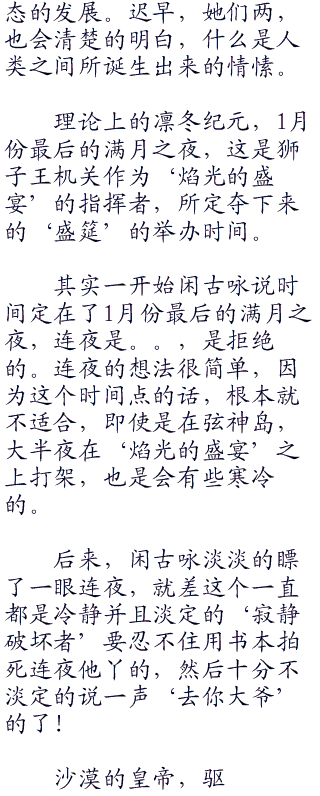 态的发展。迟早，她们两，
也会清楚的明白，什么是人
类之间所诞生出来的情愫。
理论上的凛冬纪元，1月
份最后的满月之夜，这是狮
子王机关作为‘焰光的盛
宴’的指挥者，所定夺下来
的‘盛筵’的举办时间。
其实一开始闲古咏说时
间定在了1月份最后的满月之
夜，连夜是。。，是拒绝
的。连夜的想法很简单，因
为这个时间点的话，根本就
不适合，即使是在弦神岛，
大半夜在‘焰光的盛宴’之
上打架，也是会有些寒冷
的。
后来，闲古咏淡淡的瞟
了一眼连夜，就差这个一直
都是冷静并且淡定的‘寂静
破坏者’要忍不住用书本拍
死连夜他丫的，然后十分不
淡定的说一声‘去你大爷’
的了！
沙漠的皇帝，驱